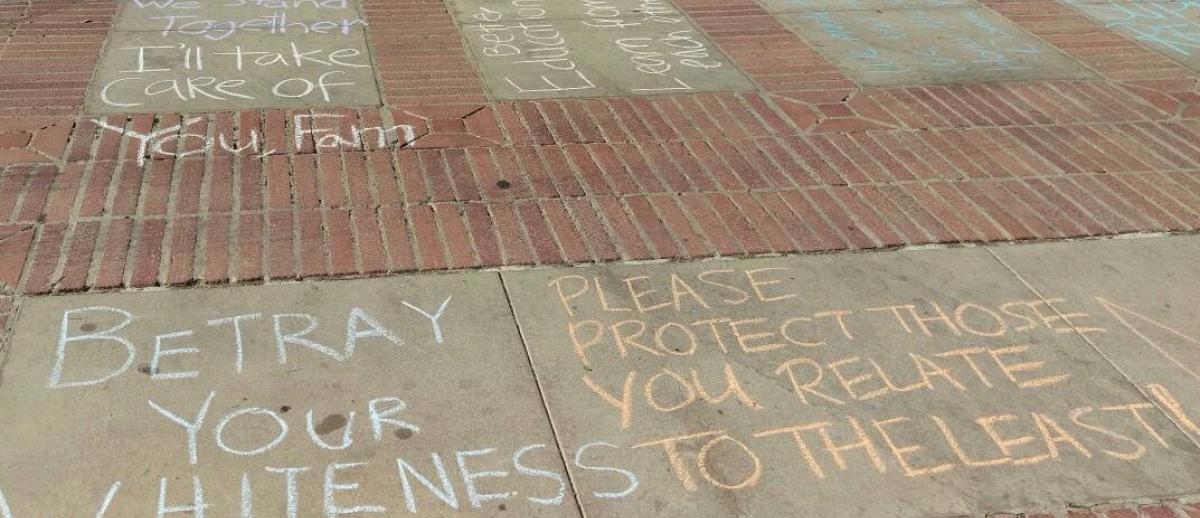 We Stand
Together
I'll take
Care of
You, Fam
Better
Education
Learn from
each other
BETRAY
YOUR
WHITENESS
PLEASE
PROTECT THOSE
YOU RELATE
TO THE LEAST!